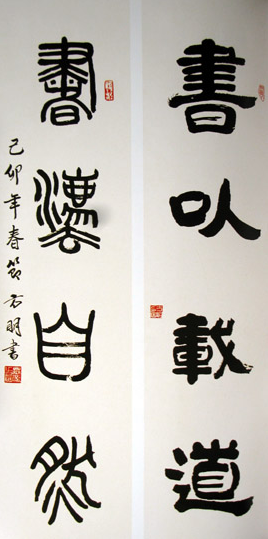 書以載道
書灋自然
己卯年春節明書